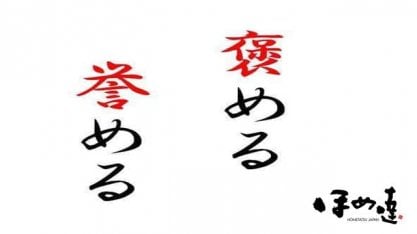 褒める
誉める
ほめ達
HOMETATSU JAPAN